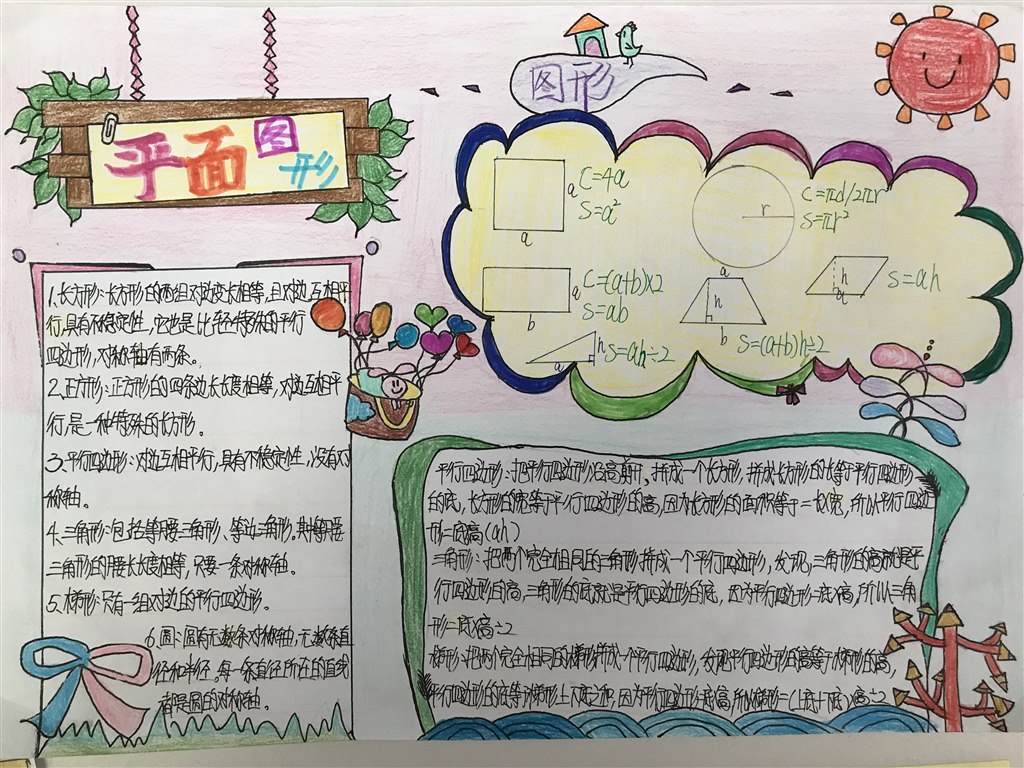 平面图形
图形
a
a
C=4a
S=a²
r
C=πd/2πr
S=πr²
a
b
C=(a+b)×2
S=ab
a
h
b
S=(a+b)h÷2
h
a
S=ah
h
a
S=ah÷2
1.长方形:长方形的两组对边长相等,且对边互相平
行,具有不稳定性,它也是比较特殊的平行
四边形,对称轴有两条。
2.正方形:正方形的四条边长长度相等,对边互相平
行,是一种特殊的长方形。
3.平行四边形:对边互相平行,具有不稳定性,没有对
称轴。
4.三角形:包括等腰三角形、等边三角形,其中等腰
三角形的腰长长度相等,只要一条对称轴。
5.梯形:只有一组对边的平行四边形。
6.圆:圆有无数条对称轴,无数条直
径和半径,每一条直径所在的直线
都是圆的对称轴。
平行四边形:把平行四边形沿高剪开。拼成一个长方形,拼成长方形的长等于平行四边形
的底,长方形的宽等于平行四边形的高,因为长方形的面积等于=长宽,所以平行四边
形=底高(ah)
三角形:把两个完全相同的三角形拼成一个平行四边形,发现,三角形的高就是平
行四边形的高,三角形的底就是平行四边形的底,因为平行四边形=底高,所以三角
形=底高÷2
梯形:把两个完全相同的梯形拼成一个平行四边形,发现平行四边形的高等于梯形的高,
平行四边形的底等于梯形上下底之和,因为平行四边形=底高,所以梯形=(上底+下底)高÷2